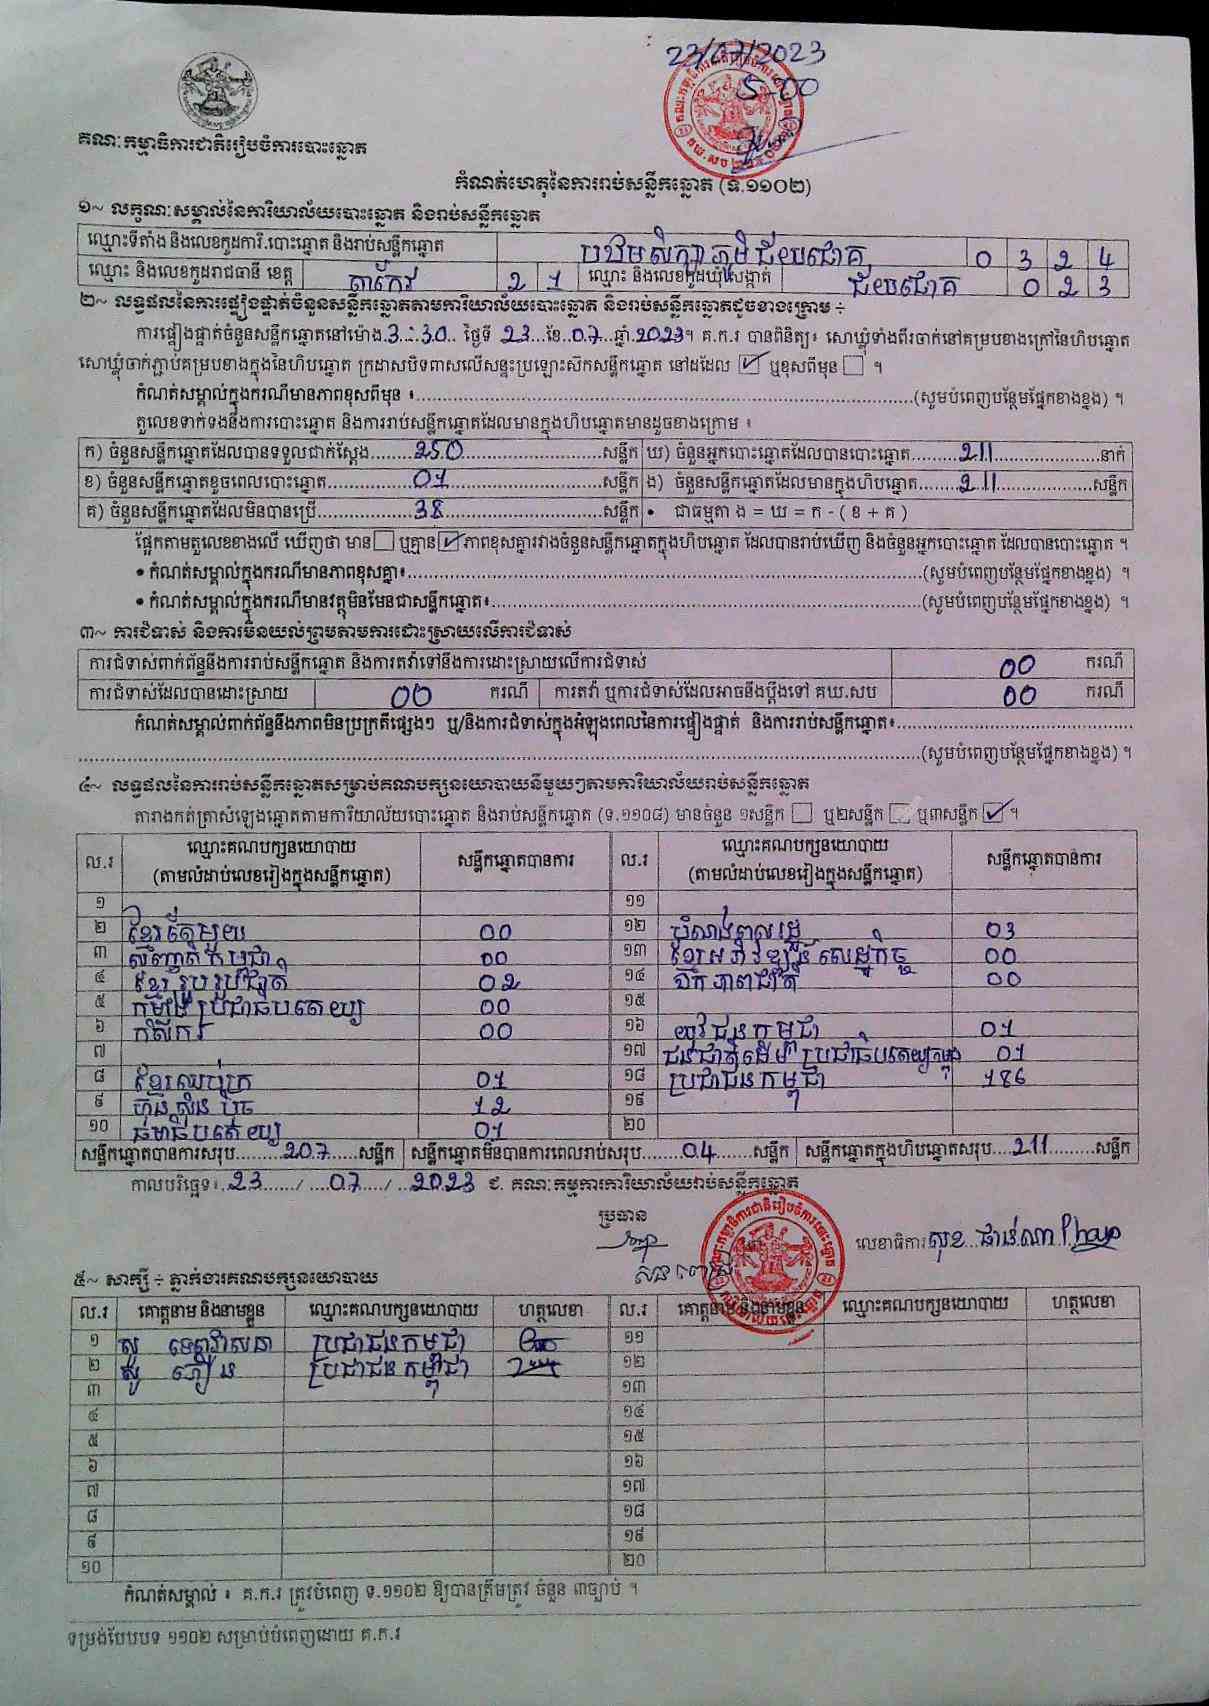 23/07/2023
5-00
គណៈកម្មាធិការជាតិរៀបចំការបោះឆ្នោត
កំណត់ហេតុនៃការរាប់សន្លឹកឆ្នោត (ទ.១១០២)
១~ លក្ខណៈសម្គាល់នៃការិយាល័យបោះឆ្នោត និងរាប់សន្លឹកឆ្នោត
ឈ្មោះទីតាំង និងលេខកូដការិ.បោះឆ្នោត និងរាប់សន្លឹកឆ្នោត បឋមសិក្សាភូមិជ័យជោគ 0 3 2 4
ឈ្មោះ និងលេខកូដរាជធានី ខេត្ត តាកែវ 2 1 ឈ្មោះ និងលេខកូដឃុំ សង្កាត់ ជ័យជោគ 0 2 3
២~ លទ្ធផលនៃការផ្ទៀងផ្ទាត់ចំនួនសន្លឹកឆ្នោតតាមការិយាល័យបោះឆ្នោត និងរាប់សន្លឹកឆ្នោតដូចខាងក្រោម ÷
ការផ្ទៀងផ្ទាត់ចំនួនសន្លឹកឆ្នោតនៅម៉ោង 3:30 ថ្ងៃទី 23 ខែ 07 ឆ្នាំ 2023។ គ.ក.រ បានពិនិត្យ៖ សោឃ្លុំទាំងពីរចាក់នៅគម្របខាងក្រៅនៃហិបឆ្នោត
សោឃ្លុំចាក់ភ្ជាប់គម្របខាងក្នុងនៃហិបឆ្នោត ក្រដាសបិទពាសលើសន្ទះប្រឡោះស៊កសន្លឹកឆ្នោត នៅដដែល ☑ ឬខុសពីមុន ☐ ។
កំណត់សម្គាល់ក្នុងករណីមានភាពខុសពីមុន ៖ (សូមបំពេញបន្ថែមផ្នែកខាងខ្នង) ។
តួលេខទាក់ទងនឹងការបោះឆ្នោត និងការរាប់សន្លឹកឆ្នោតដែលមានក្នុងហិបឆ្នោតមានដូចខាងក្រោម ៖
ក) ចំនួនសន្លឹកឆ្នោតដែលបានទទួលជាក់ស្តែង 250 សន្លឹក ឃ) ចំនួនអ្នកបោះឆ្នោតដែលបានបោះឆ្នោត 211 នាក់
ខ) ចំនួនសន្លឹកឆ្នោតខូចពេលបោះឆ្នោត 01 សន្លឹក ង) ចំនួនសន្លឹកឆ្នោតដែលមានក្នុងហិបឆ្នោត 211 សន្លឹក
គ) ចំនួនសន្លឹកឆ្នោតដែលមិនបានប្រើ 38 សន្លឹក • ជាធម្មតា ង = ឃ = ក - ( ខ + គ )
ផ្អែកតាមតួលេខខាងលើ ឃើញថា មាន ☐ ឬគ្មាន ☑ ភាពខុសគ្នារវាងចំនួនសន្លឹកឆ្នោតក្នុងហិបឆ្នោត ដែលបានរាប់ឃើញ និងចំនួនអ្នកបោះឆ្នោត ដែលបានបោះឆ្នោត ។
• កំណត់សម្គាល់ក្នុងករណីមានភាពខុសគ្នា៖ (សូមបំពេញបន្ថែមផ្នែកខាងខ្នង) ។
• កំណត់សម្គាល់ក្នុងករណីមានវត្ថុមិនមែនជាសន្លឹកឆ្នោត៖ (សូមបំពេញបន្ថែមផ្នែកខាងខ្នង) ។
៣~ ការជំទាស់ និងការមិនយល់ព្រមតាមការដោះស្រាយលើការជំទាស់
ការជំទាស់ពាក់ព័ន្ធនឹងការរាប់សន្លឹកឆ្នោត និងការតវ៉ាទៅនឹងការដោះស្រាយលើការជំទាស់ 00 ករណី
ការជំទាស់ដែលបានដោះស្រាយ 00 ករណី ការតវ៉ា ឬការជំទាស់ដែលអាចនឹងប្តឹងទៅ គឃ.សប 00 ករណី
កំណត់សម្គាល់ពាក់ព័ន្ធនឹងភាពមិនប្រក្រតីផ្សេងៗ ឬ/និងការជំទាស់ក្នុងអំឡុងពេលនៃការផ្ទៀងផ្ទាត់ និងការរាប់សន្លឹកឆ្នោត៖
(សូមបំពេញបន្ថែមផ្នែកខាងខ្នង) ។
៤~ លទ្ធផលនៃការរាប់សន្លឹកឆ្នោតសម្រាប់គណបក្សនយោបាយនីមួយៗតាមការិយាល័យរាប់សន្លឹកឆ្នោត
តារាងកត់ត្រាសំឡេងឆ្នោតតាមការិយាល័យបោះឆ្នោត និងរាប់សន្លឹកឆ្នោត (ទ.១១០៨) មានចំនួន ១សន្លឹក ☐ ឬ២សន្លឹក ☐ ឬ៣សន្លឹក ☑ ។
ល.រ ឈ្មោះគណបក្សនយោបាយ (តាមលំដាប់លេខរៀងក្នុងសន្លឹកឆ្នោត) សន្លឹកឆ្នោតបានការ ល.រ ឈ្មោះគណបក្សនយោបាយ (តាមលំដាប់លេខរៀងក្នុងសន្លឹកឆ្នោត) សន្លឹកឆ្នោតបានការ
១ ១១
២ ខ្មែរតែមួយ 00 ១២ បំណងពលរដ្ឋ 03
៣ សញ្ជាតិកម្ពុជា 00 ១៣ ខ្មែរអភិវឌ្ឍន៍សេដ្ឋកិច្ច 00
៤ ខ្មែររួបរួមជាតិ 02 ១៤ ឯកភាពជាតិ 00
៥ កម្លាំងប្រជាធិបតេយ្យ 00 ១៥
៦ កសិករ 00 ១៦ យុវជនកម្ពុជា 01
៧ ១៧ ជនជាតិដើមប្រជាធិបតេយ្យកម្ពុជា 01
៨ ខ្មែរឈប់ក្រ 01 ១៨ ប្រជាជនកម្ពុជា 186
៩ ហ៊្វុនស៊ិនប៉ិច 12 ១៩
១០ ធម្មាធិបតេយ្យ 01 ២០
សន្លឹកឆ្នោតបានការសរុប 207 សន្លឹក សន្លឹកឆ្នោតមិនបានការពេលរាប់សរុប 04 សន្លឹក សន្លឹកឆ្នោតក្នុងហិបឆ្នោតសរុប 211 សន្លឹក
កាលបរិច្ឆេទ៖ 23 / 07 / 2023 ជ. គណៈកម្មការការិយាល័យរាប់សន្លឹកឆ្នោត
ប្រធាន
លេខាធិការ សុខ ផាន់ណា
៥~ សាក្សី ÷ ភ្នាក់ងារគណបក្សនយោបាយ
ល.រ គោត្តនាម និងនាមខ្លួន ឈ្មោះគណបក្សនយោបាយ ហត្ថលេខា ល.រ គោត្តនាម និងនាមខ្លួន ឈ្មោះគណបក្សនយោបាយ ហត្ថលេខា
១ សូ ទេព្វវាសនា ប្រជាជនកម្ពុជា ១១
២ សូ ភឿន ប្រជាជនកម្ពុជា ១២
៣ ១៣
៤ ១៤
៥ ១៥
៦ ១៦
៧ ១៧
៨ ១៨
៩ ១៩
១០ ២០
កំណត់សម្គាល់ ៖ គ.ក.រ ត្រូវបំពេញ ទ.១១០២ ឱ្យបានត្រឹមត្រូវ ចំនួន ៣ច្បាប់ ។
ទម្រង់បែបបទ ១១០២ សម្រាប់បំពេញដោយ គ.ក.រ